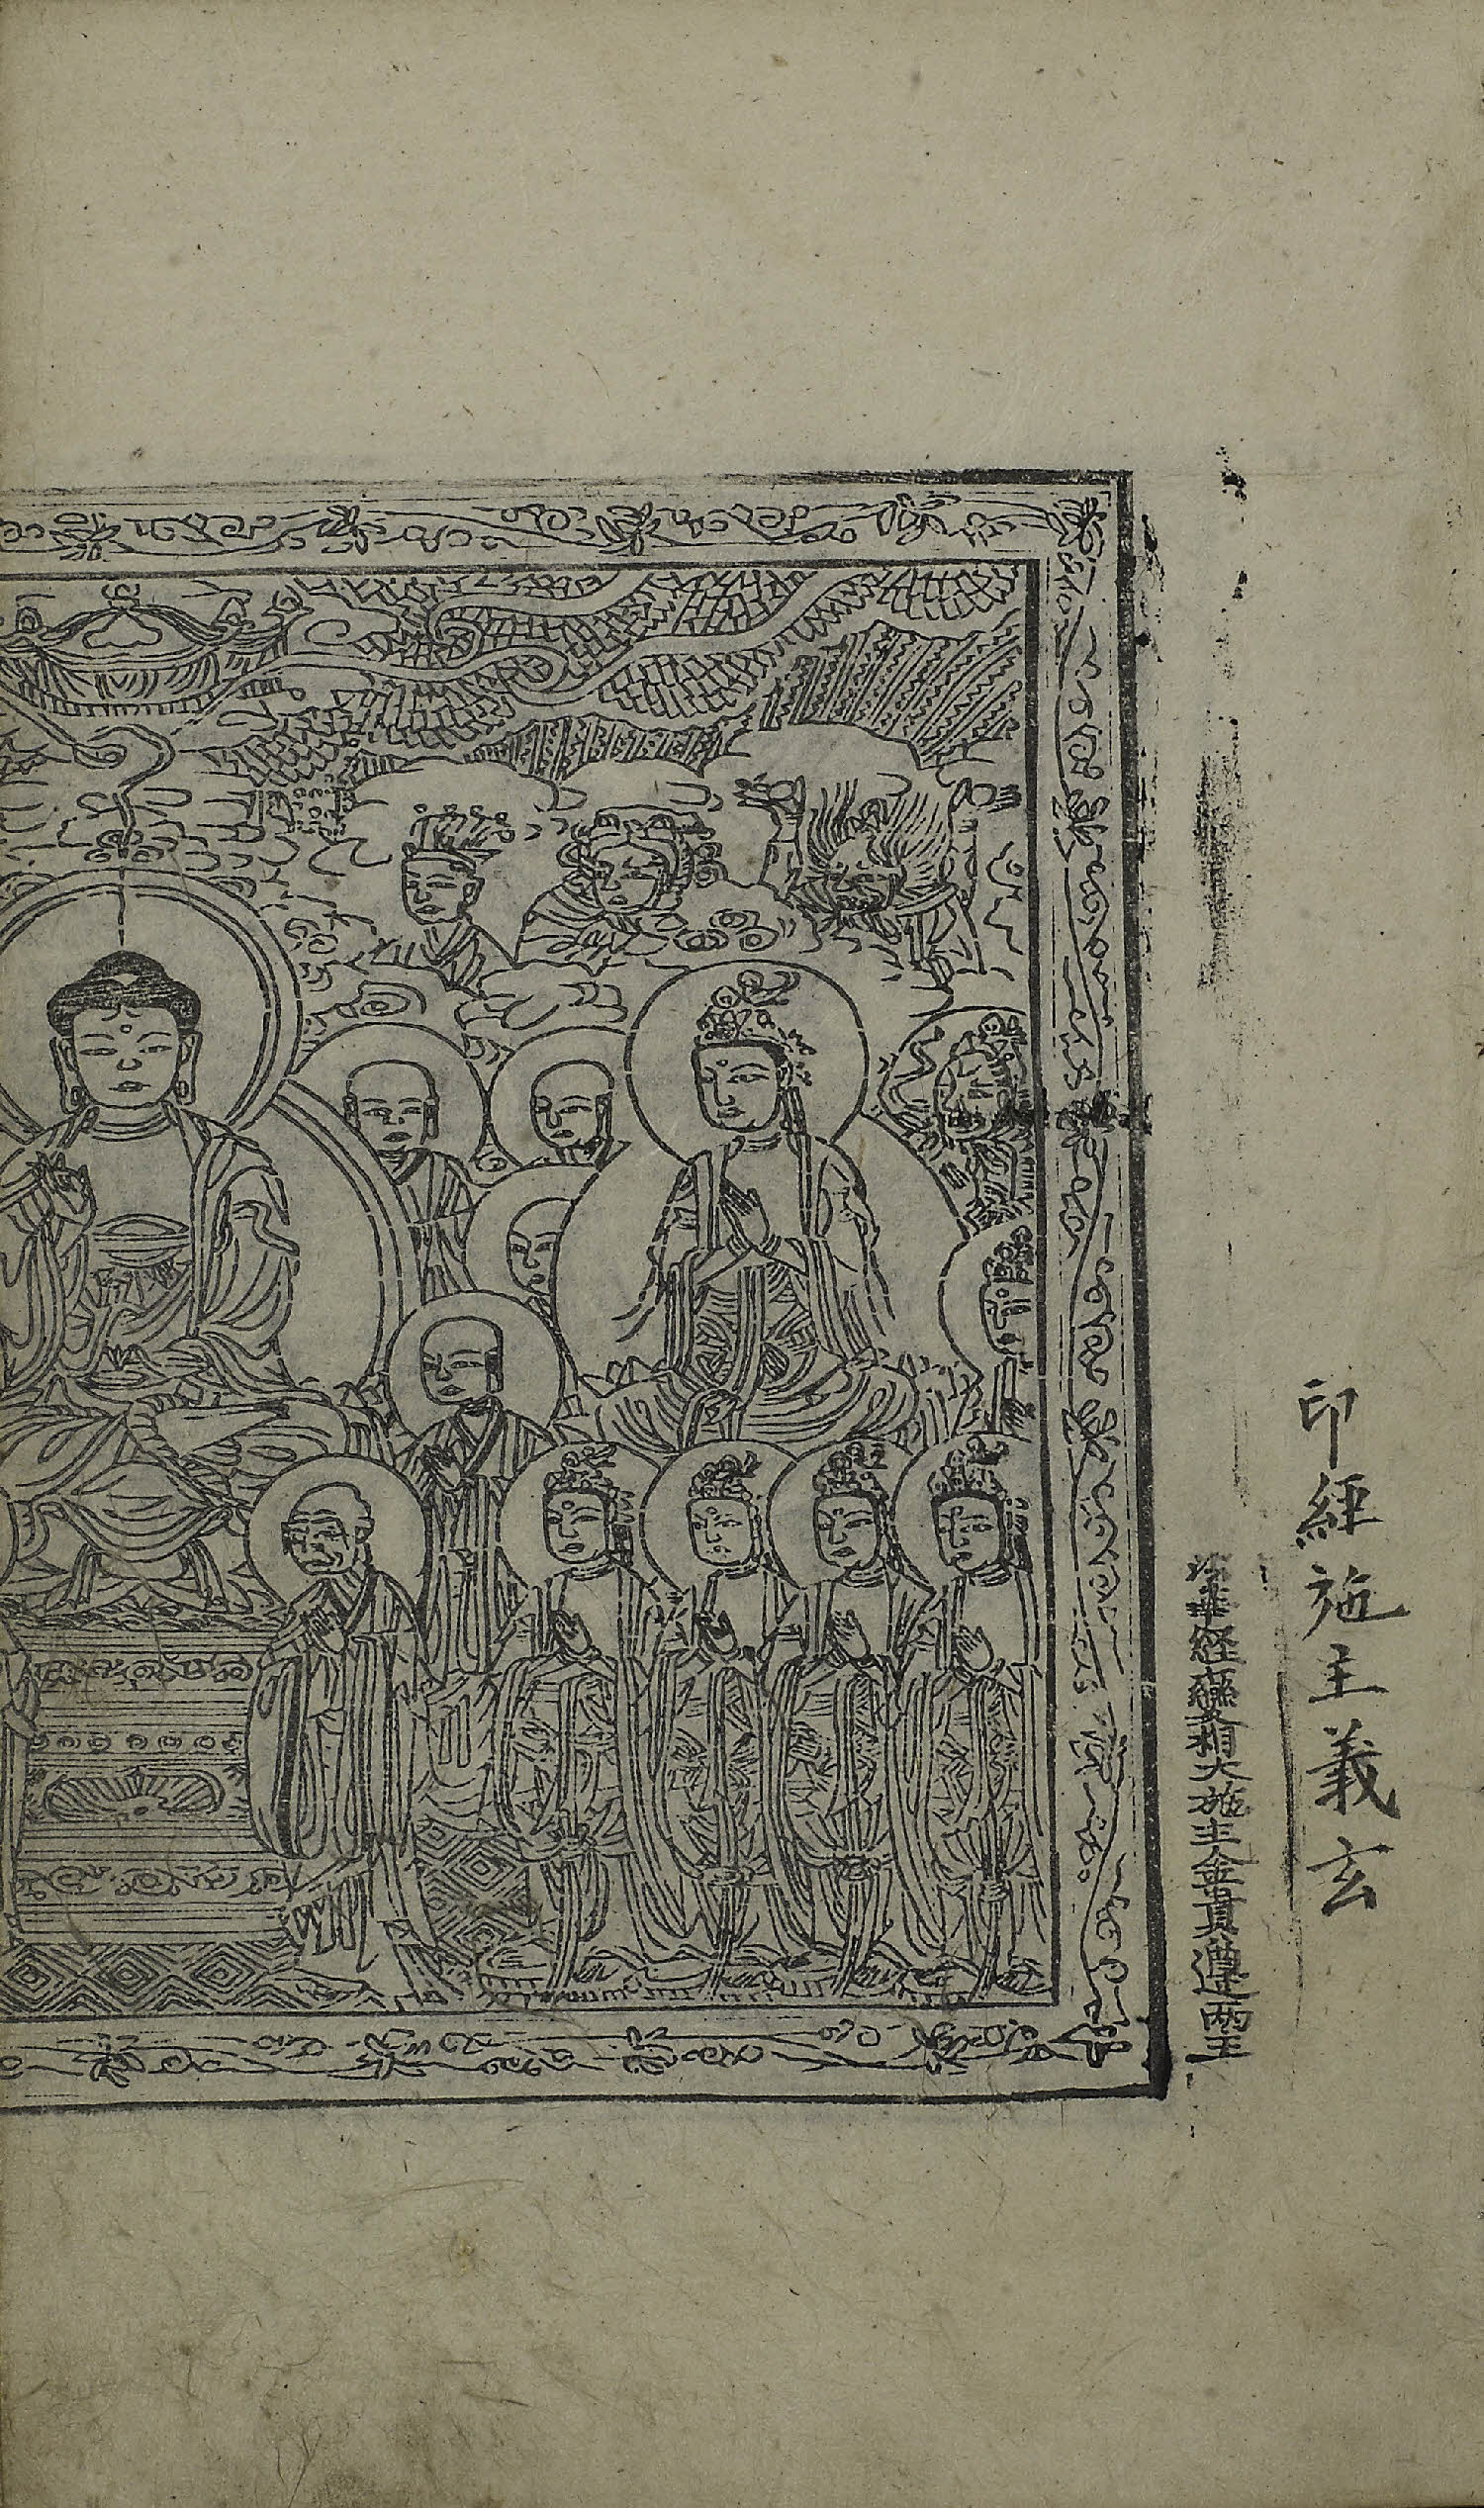 印經施主義玄
法華經變相大施主金貴遵兩主